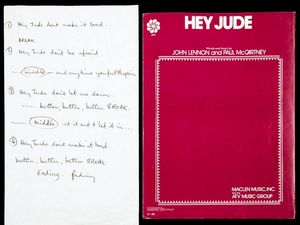 ① Hey Jude dont make it bad.
BREAK
② Hey Jude don't be afraid
..... middle — and any time you feel the pain
③ Hey Jude don't let me down
--- better, better, better BREAK.
..... middle let it out & let it in ...
④ Hey Jude dont make it bad.
better, better, better BREAK
Ending. Fading
HEY JUDE
Words and Music by
JOHN LENNON and PAUL McCARTNEY
MACLEN MUSIC, INC.
ATV MUSIC GROUP